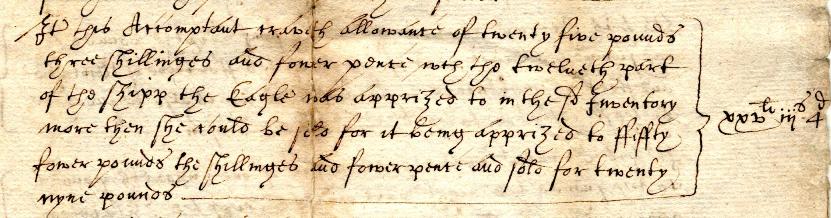 It this Accomptant craveth allowance of twenty five pounds
three shillinges and fower pence wch the twelveth part
of the shipp the Eagle was apprized to in the sd Inventory
more then she could be sold for it being apprized to ffiffty
fower pounds the shillinges and fower pence and sold for twenty
nyne pounds
xxvli iijs 4d